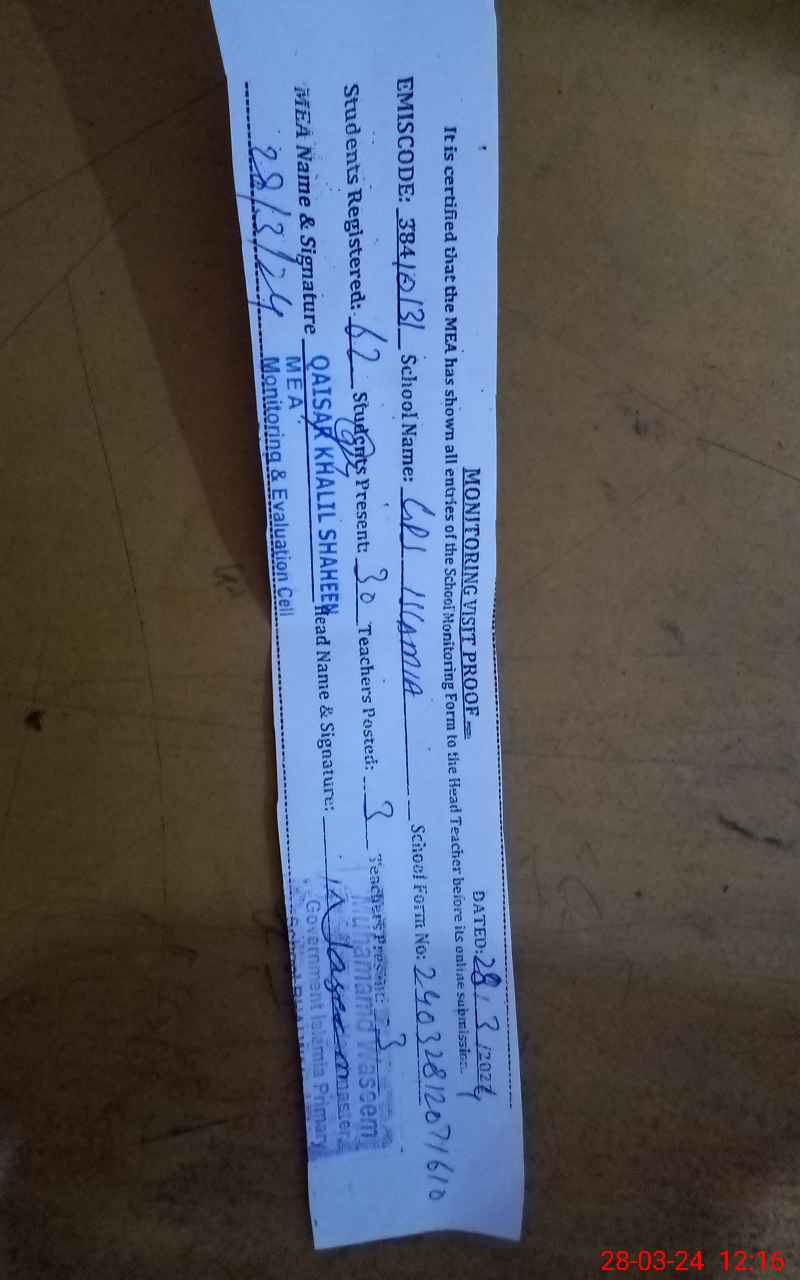 MONITORING VISIT PROOF
DATED: 28/3/2024
It is certified that the MEA has shown all entries of the School Monitoring Form to the Head Teacher before its online submission.
EMISCODE: 38410131 School Name: GPS ISLAMIA School Form No: 24032812071610
Students Registered: 62 Students Present: 30 Teachers Posted: 3 Teachers Present: 3
MEA Name & Signature QAISAR KHALIL SHAHEEN Head Name & Signature:
MEA
Monitoring & Evaluation Cell
28/3/24
Muhamamd Waseem
Government Islamia Primary
28-03-24 12:16